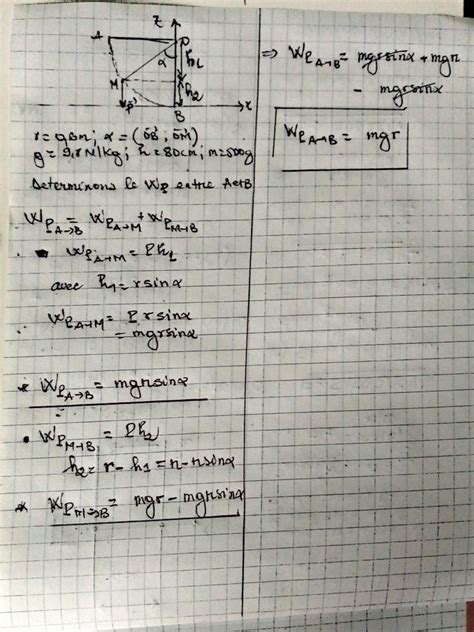 z
A
O
α
h₁
M
h₂
P⃗
B
x
r = 0,8m ; α = (OB⃗, OM⃗)
g = 9,8N/kg ; r = 80cm ; m = 500g
Determinons le Wp entre A et B
W_P A→B = W_P A→M + W_P M→B
• W_P A→M = P h₁
avec h₁ = r sinα
W_P A→M = P r sinα
= mgr sinα
* W_P A→B = mgr sinα
• W_P M→B = P h₂
h₂ = r - h₁ = r - r sinα
* W_P M→B = mgr - mgr sinα
⇒ W_P A→B = mgr sinα + mgr
- mgr sinα
W_P A→B = mgr